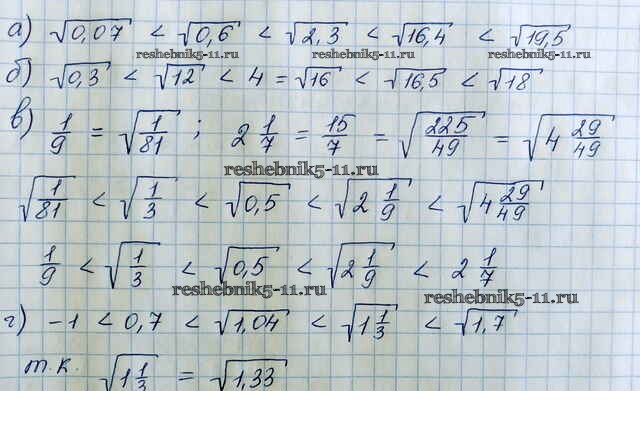 а) √0,07 < √0,6 < √2,3 < √16,4 < √19,5
reshebnik5-11.ru reshebnik5-11.ru
б) √0,3 < √12 < 4 = √16 < √16,5 < √18
в) 1/9 = √(1/81) ; 2 1/7 = 15/7 = √(225/49) = √(4 29/49)
reshebnik5-11.ru
√(1/81) < √(1/3) < √0,5 < √(2 1/9) < √(4 29/49)
1/9 < √(1/3) < √0,5 < √(2 1/9) < 2 1/7
reshebnik5-11.ru reshebnik5-11.ru
г) -1 < 0,7 < √1,04 < √(1 1/3) < √1,7
т.к. √(1 1/3) = √1,33